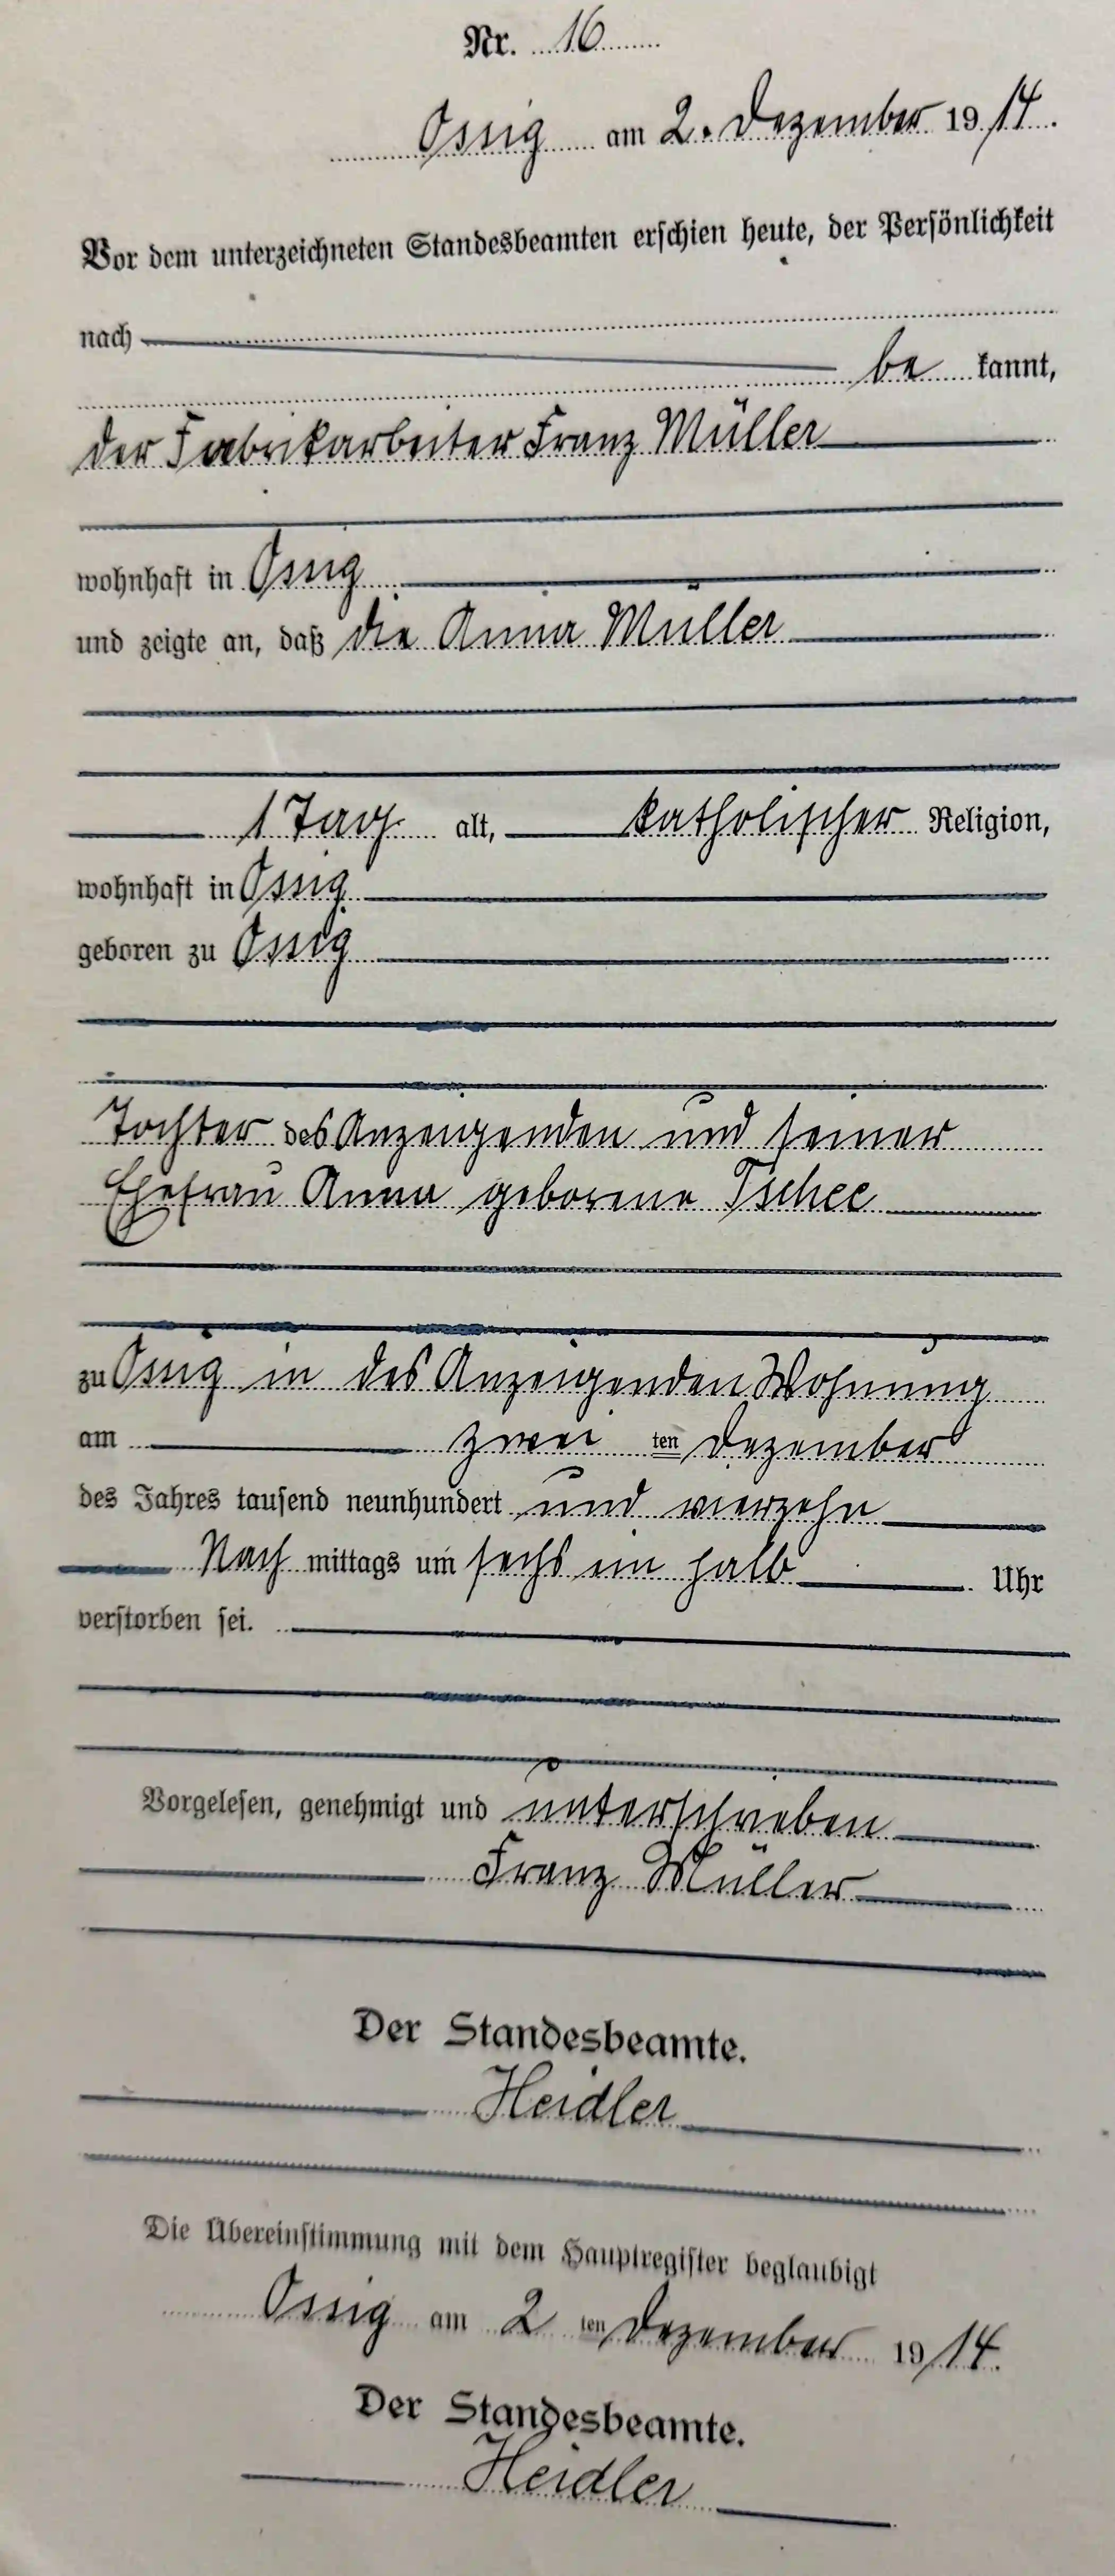 Nr. 16
Ossig am 2. Dezember 1914.
Vor dem unterzeichneten Standesbeamten erschien heute, der Persönlichkeit
nach
be kannt,
der Fabrikarbeiter Franz Müller
wohnhaft in Ossig
und zeigte an, daß die Anna Müller
1 Tag alt, katholischer Religion,
wohnhaft in Ossig
geboren zu Ossig
Tochter des Anzeigenden und seiner
Ehefrau Anna geborene
zu Ossig in des Anzeigenden Wohnung
am zwei ten Dezember
des Jahres tausend neunhundert und vierzehn
Nach mittags um sechs ein halb Uhr
verstorben sei.
Vorgelesen, genehmigt und unterschrieben
Franz Müller
Der Standesbeamte.
Heidler
Die Übereinstimmung mit dem Hauptregister beglaubigt
Ossig am 2 ten Dezember 1914.
Der Standesbeamte.
Heidler